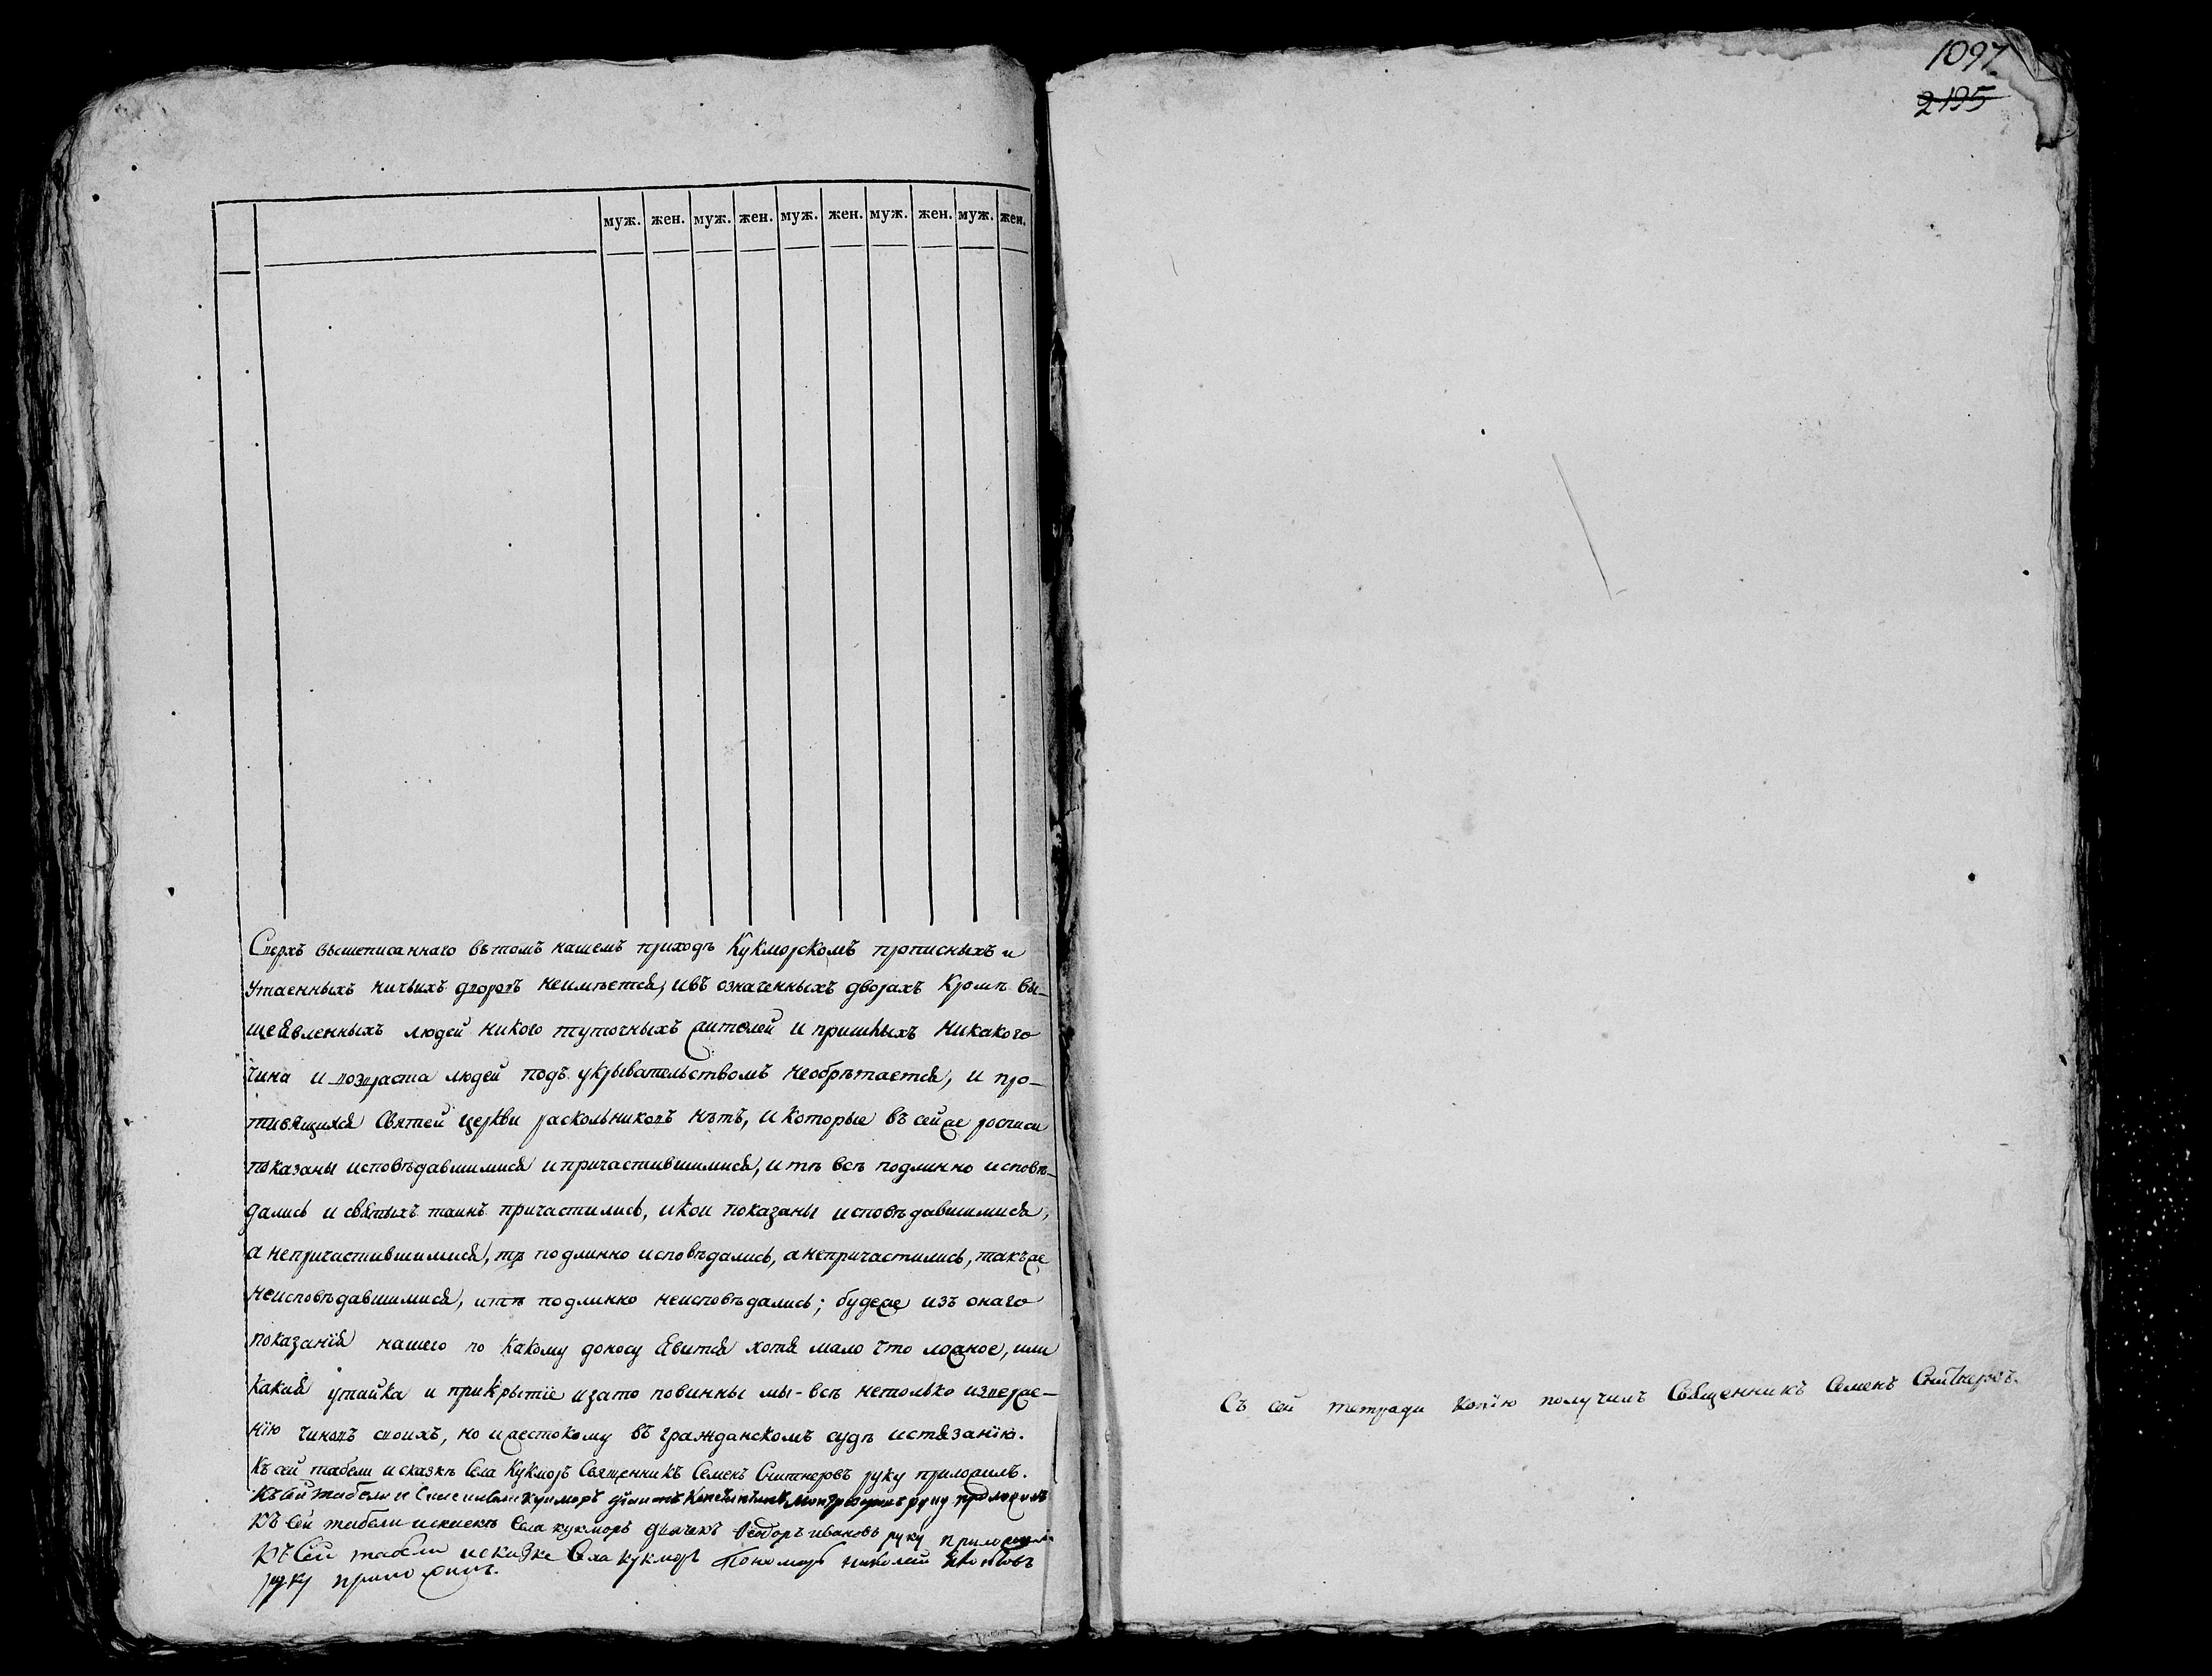 муж. жен. муж. жен. муж. жен. муж. жен. муж. жен.
Сверхъ вышеписаннаго вътомъ нашемъ приходѣ Кукморскомъ прописныхъ и
утаенныхъ ничьихъ дворовъ неимѣется, ивъ означенныхъ дворахъ кромѣ вы-
шеявленныхъ людей никого туточныхъ жителей и пришлыхъ никакого
чина и возраста людей подъ укрывательствомъ необрѣтается, и про-
тивящихся Святей церкви раскольниковъ нѣтъ, и которые въ сейже росписи
показаны исповѣдавшимися ипричастившимися, и тѣ всѣ подлинно исповѣ-
дались и святыхъ таинъ причастились, икои показаны исповѣдавшимися,
а непричастившимися, тѣ подлинно исповѣдались, а непричастились, такъже
неисповѣдавшимися, итѣ подлинно неисповѣдались; будеже изъ онаго
показанія нашего по какому доносу явится хотя мало что ложное, или
какая утайка и прикрытіе изато повинны мы-всѣ нетолько изверже-
нію чиновъ своихъ, но ижестокому въ гражданскомъ судѣ истязанію.
Къ сей табели исказкѣ Села Кукморъ Священникъ Семенъ Снитнеровъ руку приложилъ.
Къ сей табели и кукморъ руку приложилъ
Къ сей табели Села кукморъ дьячекъ Ѳеодоръ ивановъ руку приложилъ
Къ сей табели исказке Села кукморъ Пономарь николай
руку приложилъ.
1097
2195
Съ сей тетради копію получилъ Священникъ Семенъ Снитнеровъ.